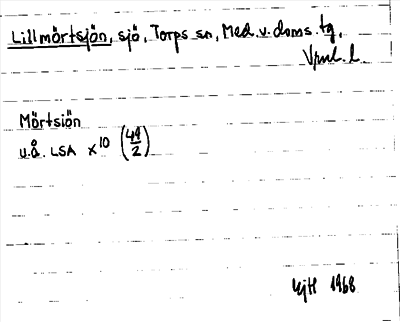 Lillmörtsjön, sjö, Torps sn, Med. v. doms. tg,
Vpml. l.
Mörtsjön
u.å. LSA x¹⁰ (44/2)
EjH 1968